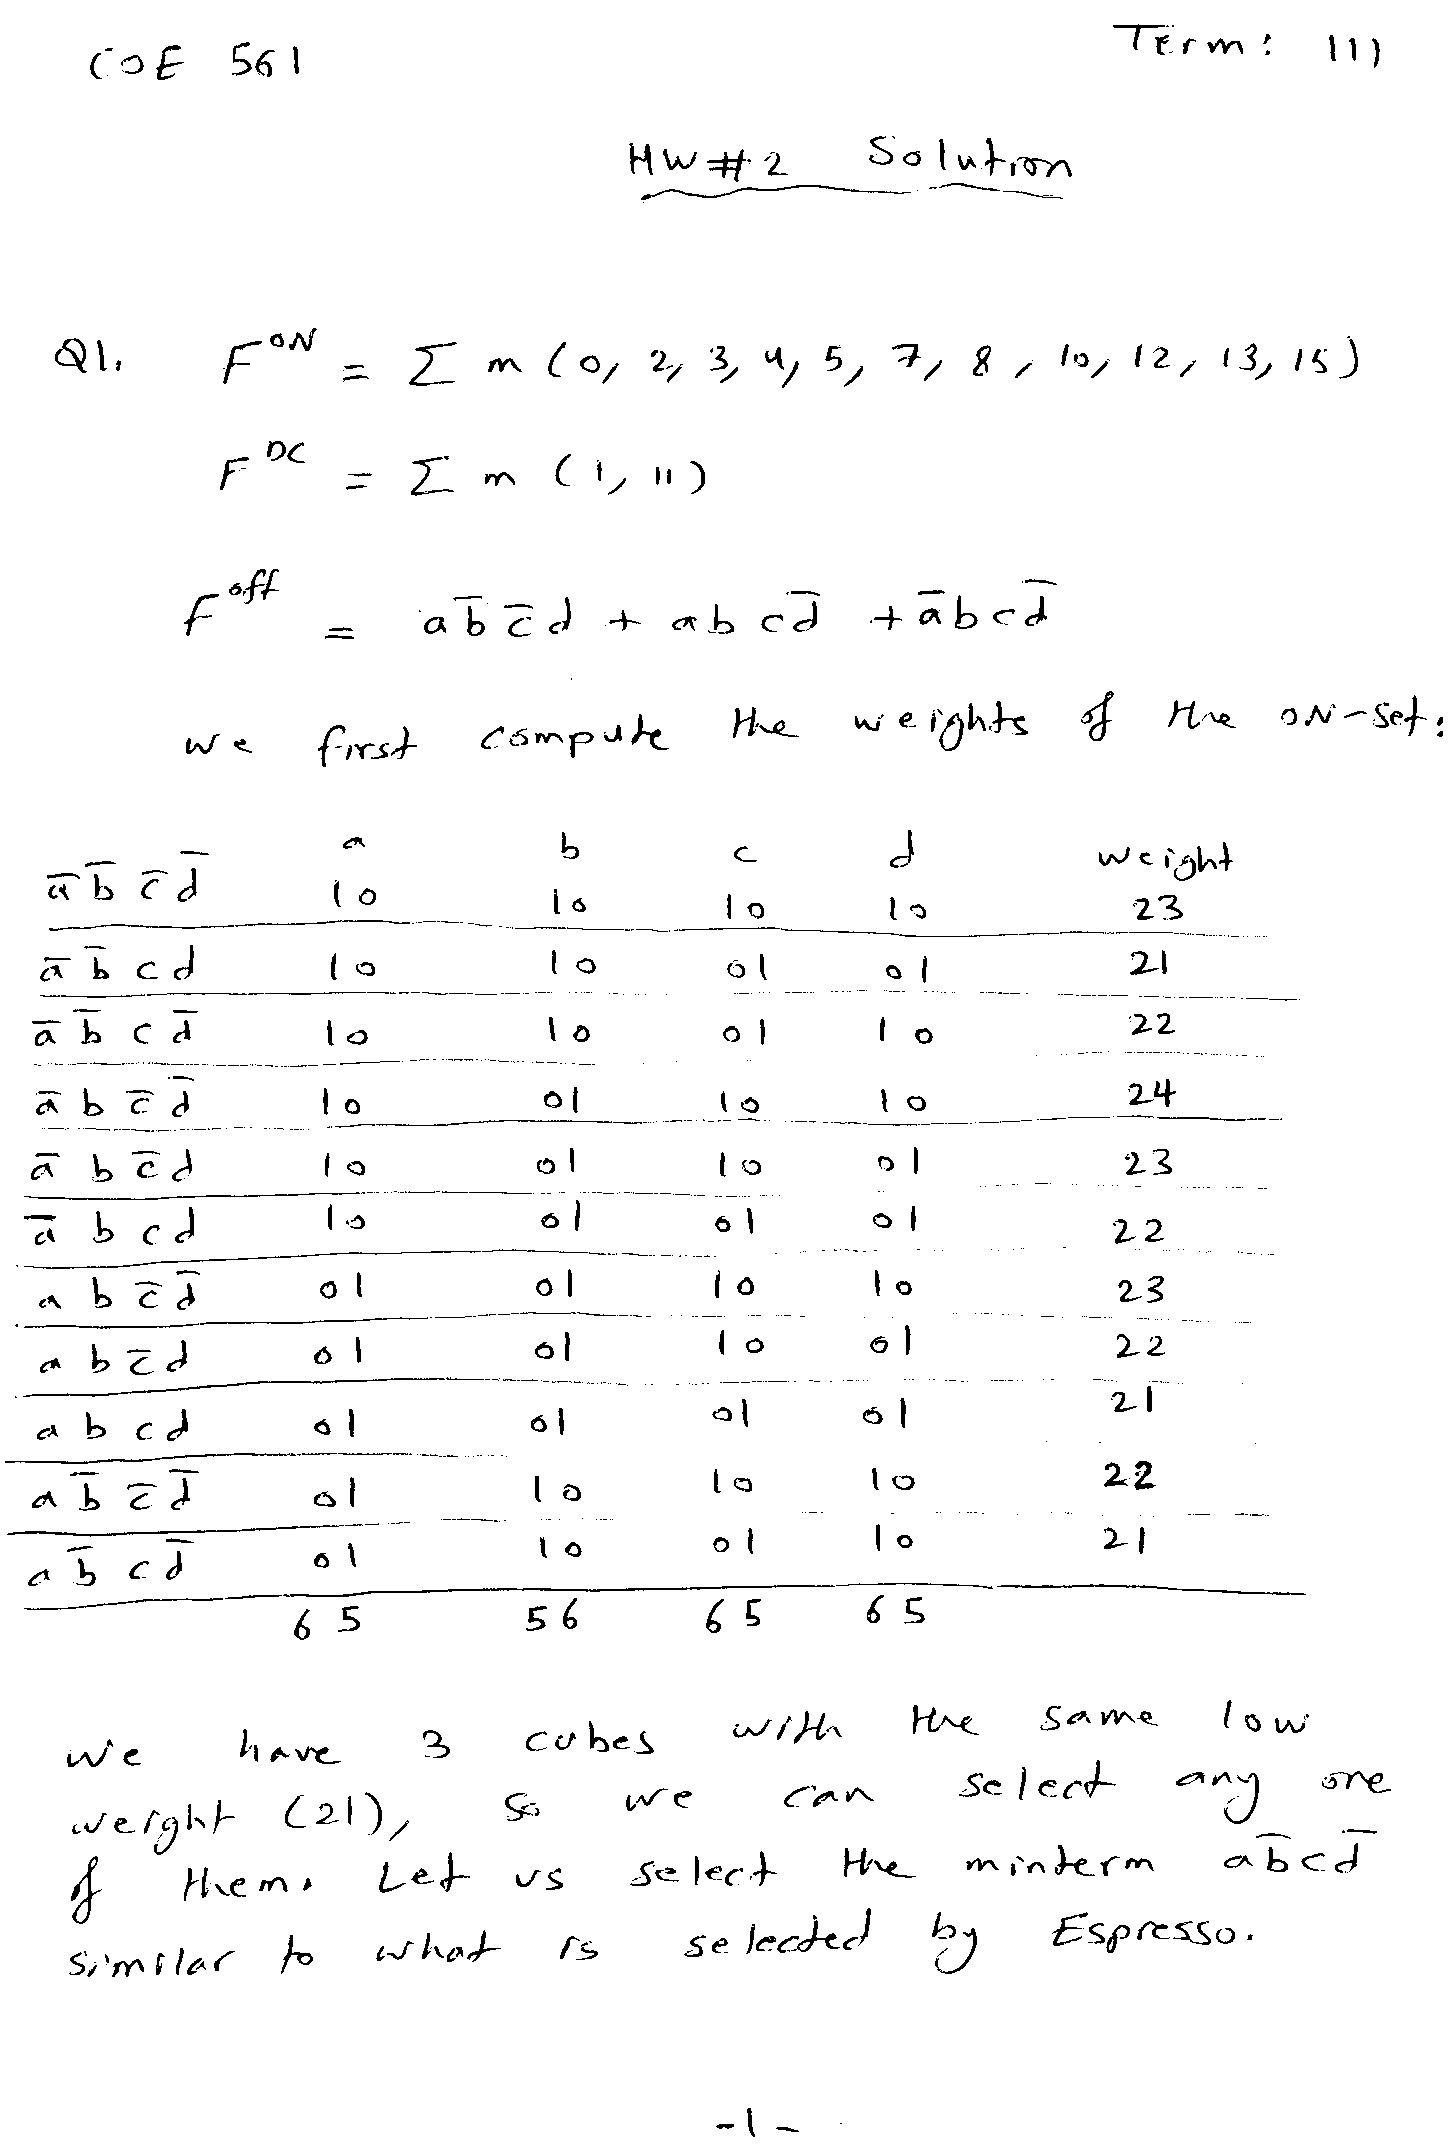 COE 561 Term: 111
HW#2 Solution
Q1. F^ON = Σ m (0, 2, 3, 4, 5, 7, 8, 10, 12, 13, 15)
F^DC = Σ m (1, 11)
F^off = a b̄ c̄ d + a b c d̄ + ā b c d̄
we first compute the weights of the ON-set:
a b c d weight
ā b̄ c̄ d̄ 10 10 10 10 23
ā b̄ c d 10 10 01 01 21
ā b̄ c d̄ 10 10 01 10 22
ā b c̄ d̄ 10 01 10 10 24
ā b c̄ d 10 01 10 01 23
ā b c d 10 01 01 01 22
a b c̄ d̄ 01 01 10 10 23
a b c̄ d 01 01 10 01 22
a b c d 01 01 01 01 21
a b̄ c̄ d̄ 01 10 10 10 22
a b̄ c d̄ 01 10 01 10 21
6 5 5 6 6 5 6 5
we have 3 cubes with the same low
weight (21), so we can select any one
of them. Let us select the minterm a b̄ c d̄
similar to what is selected by Espresso.
-1-